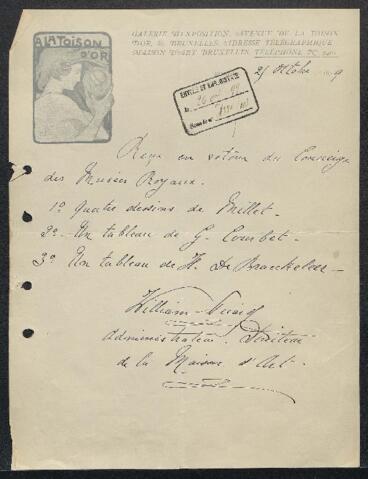 A LA TOISON
D'OR
GALERIE D'EXPOSITION, AVENUE DE LA TOISON
D'OR, BRUXELLES. ADRESSE TÉLÉGRAPHIQUE
MAISON D'ART BRUXELLES. TÉLÉPHONE
25 Octobre 9
Reçu en retour du Concierge
des Musées Royaux.
1º quatre dessins de Millet.
2º - Un tableau de G. Courbet.
3º Un tableau de H. De Braekeleer -
William Picard
Administrateur. Directeur
de la Maison d'Art.